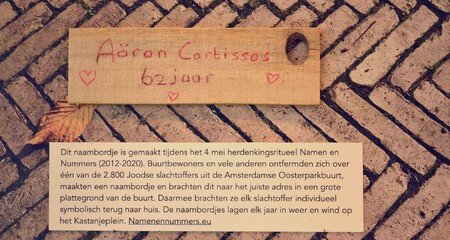 Aäron Cartissos
62 jaar
Dit naambordje is gemaakt tijdens het 4 mei herdenkingsritueel Namen en
Nummers (2012-2020). Buurtbewoners en vele anderen ontfermden zich over
één van de 2.800 Joodse slachtoffers uit de Amsterdamse Oosterparkbuurt,
maakten een naambordje en brachten dit naar het juiste adres in een grote
plattegrond van de buurt. Daarmee brachten ze elk slachtoffer individueel
symbolisch terug naar huis. De naambordjes lagen elk jaar in weer en wind op
het Kastanjeplein. Namenennummers.eu